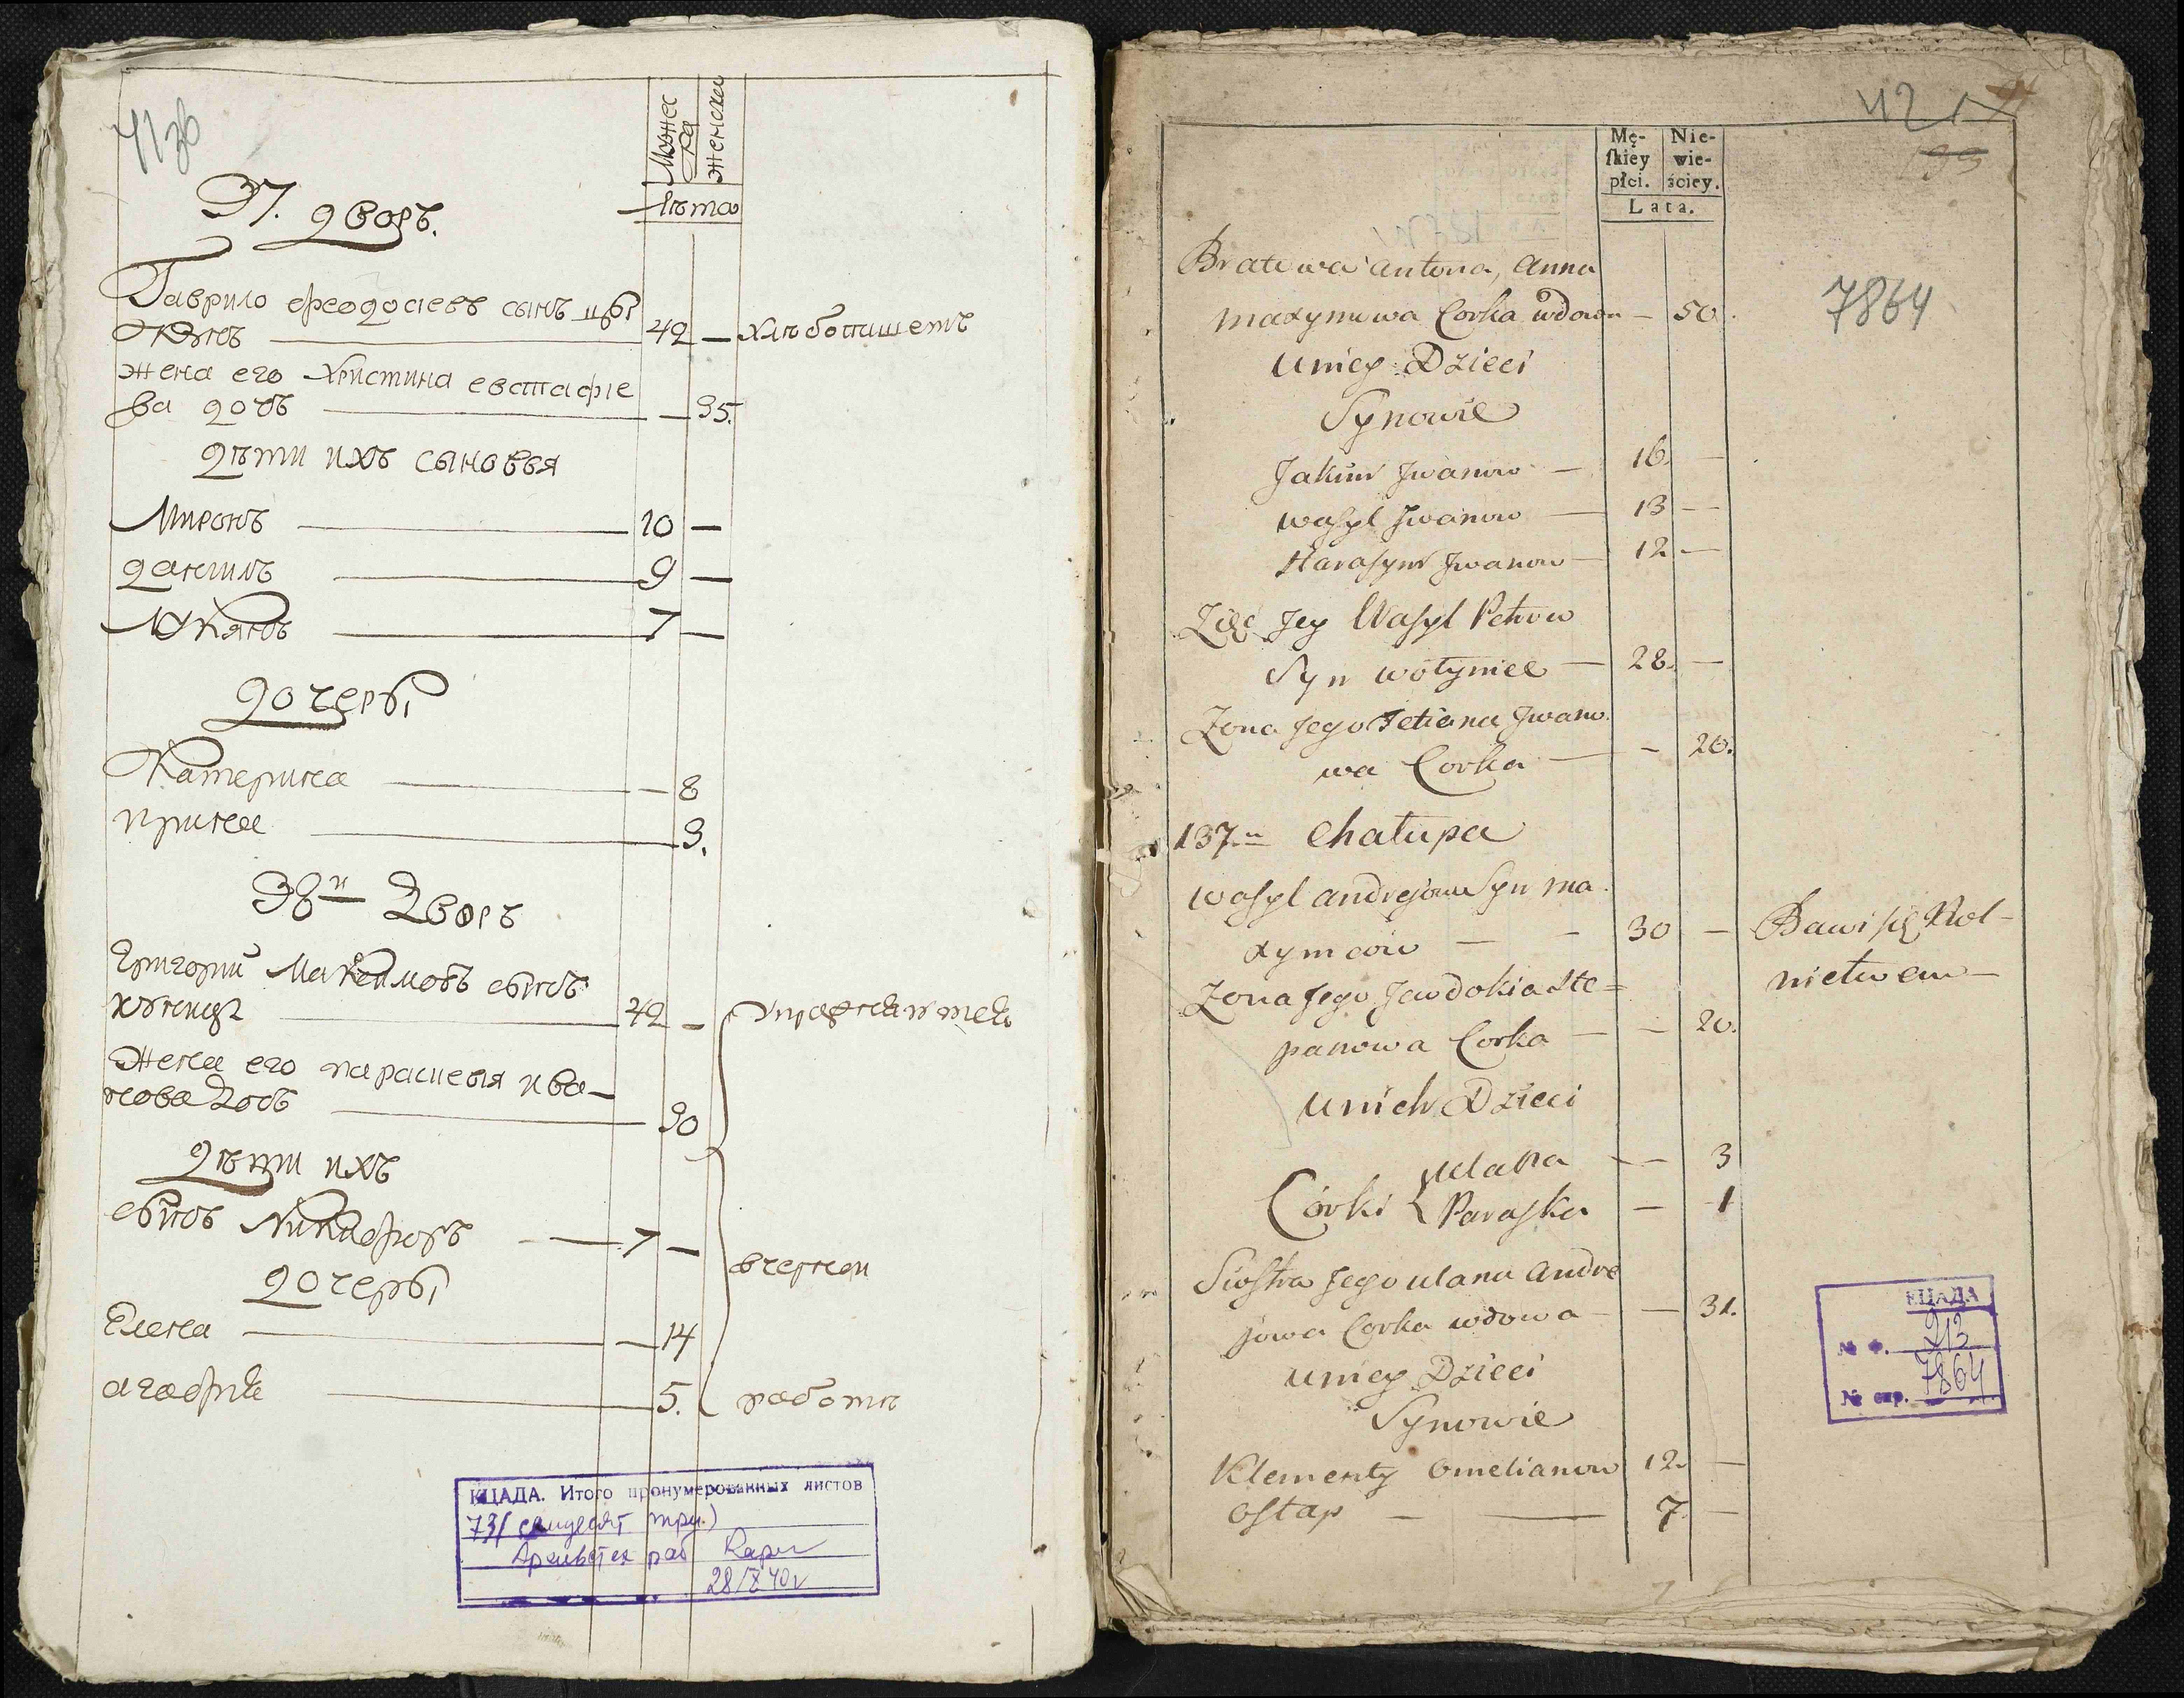 Мужеска
женска
лѣта
37. дворъ.
Гаврило феодосіевъ сынъ
42 — хлѣбопашетъ
жена его Христина евстафіе
ва дочь — 35.
дѣти ихъ сыновья
Миронъ 10 —
данилъ 9 —
Лукянъ 7 —
дочеры
Катерина — 8
ирина 3.
38й дворъ
Григорий Макимовъ сынъ
42 —
Жена его параскевия ива-
нова дочь 30
дѣти ихъ
сынъ Никифоръ 7 —
вчерней
дочеры
Елена — 14
агафия 5. работѣ
КЦАДА. Итого пронумерованных листов
73 (семьдесят три.)
28/X 40г
42
Mę-
skiey
płci.
Nie-
wie-
ściey.
Lata.
Bratowa antona, anna
maxymowa Corka wdowa — 50.
7864
Uniey Dzieci
Synowie
Jakim Jwanow — 16. —
wasyl Jwanow — 13 —
Harasym Jwanow — 12 —
Zięć Jey Wasyl Petrow
Syn wołyniec — 28. —
Zona Jego Tetiana Jwano
wa Corka — — 20.
137.a Chałupa
wasyl andrejow Syn ma
xymcow — — 30 — Bawi się Rol-
nictwem —
Zona Jego Jewdokia Ste=
panowa Corka — — 20.
Unich Dzieci
Córki { Ulana — — 3
Paraska — 1
Siostra Jego ulana andre
jowa Corka wdowa — — 31.
Uniey Dzieci
Synowie
Klementy Omelianow 12. —
Ostap — — 7. —
КЦАДА
№ Ф. 213
№ едр. 7864